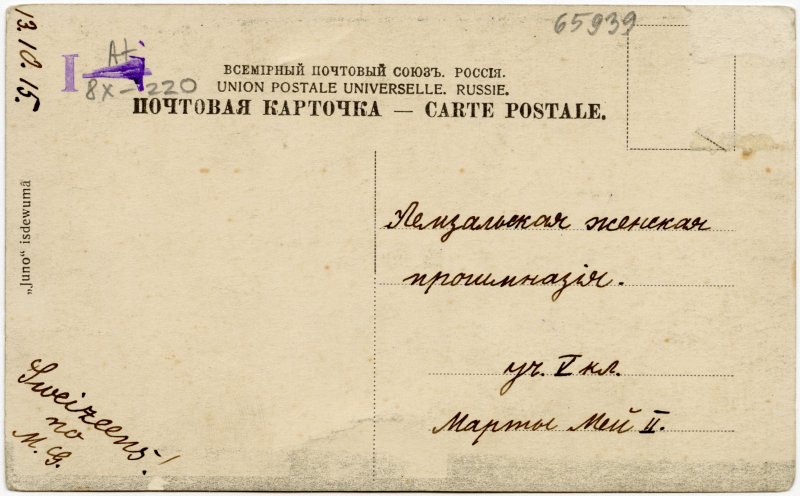 65939
13.10.15.
I
A+
8X-220
ВСЕМІРНЫЙ ПОЧТОВЫЙ СОЮЗЪ. РОССІЯ.
UNION POSTALE UNIVERSELLE. RUSSIE.
ПОЧТОВАЯ КАРТОЧКА — CARTE POSTALE.
„Juno“ isdewumā
Лемзальская женская
прогимназія.
уч. V кл.
Марты Мей II.
Sweizeens!
no
M. G.